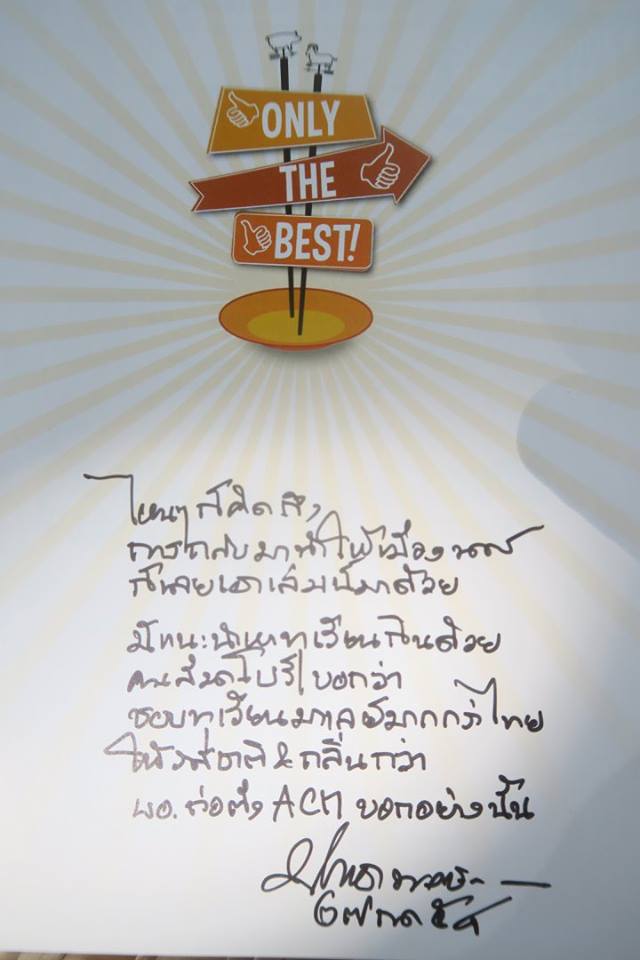 ONLY
THE
BEST!
ไหนๆ ก็คิดถึง
การกลับมาทำให้เมือง
ก็เลยเอาเล่มนี้มาด้วย
มีแนะนำทุเรียนกินด้วย
คนสิงคโปร์บอกว่า
ชอบทุเรียนมาเลย์มากกว่าไทย
ให้รสชาติ & กลิ่นกว่า
ผอ. ก่อตั้ง ACM บอกอย่างนั้น
๒๗ กค ๕๔